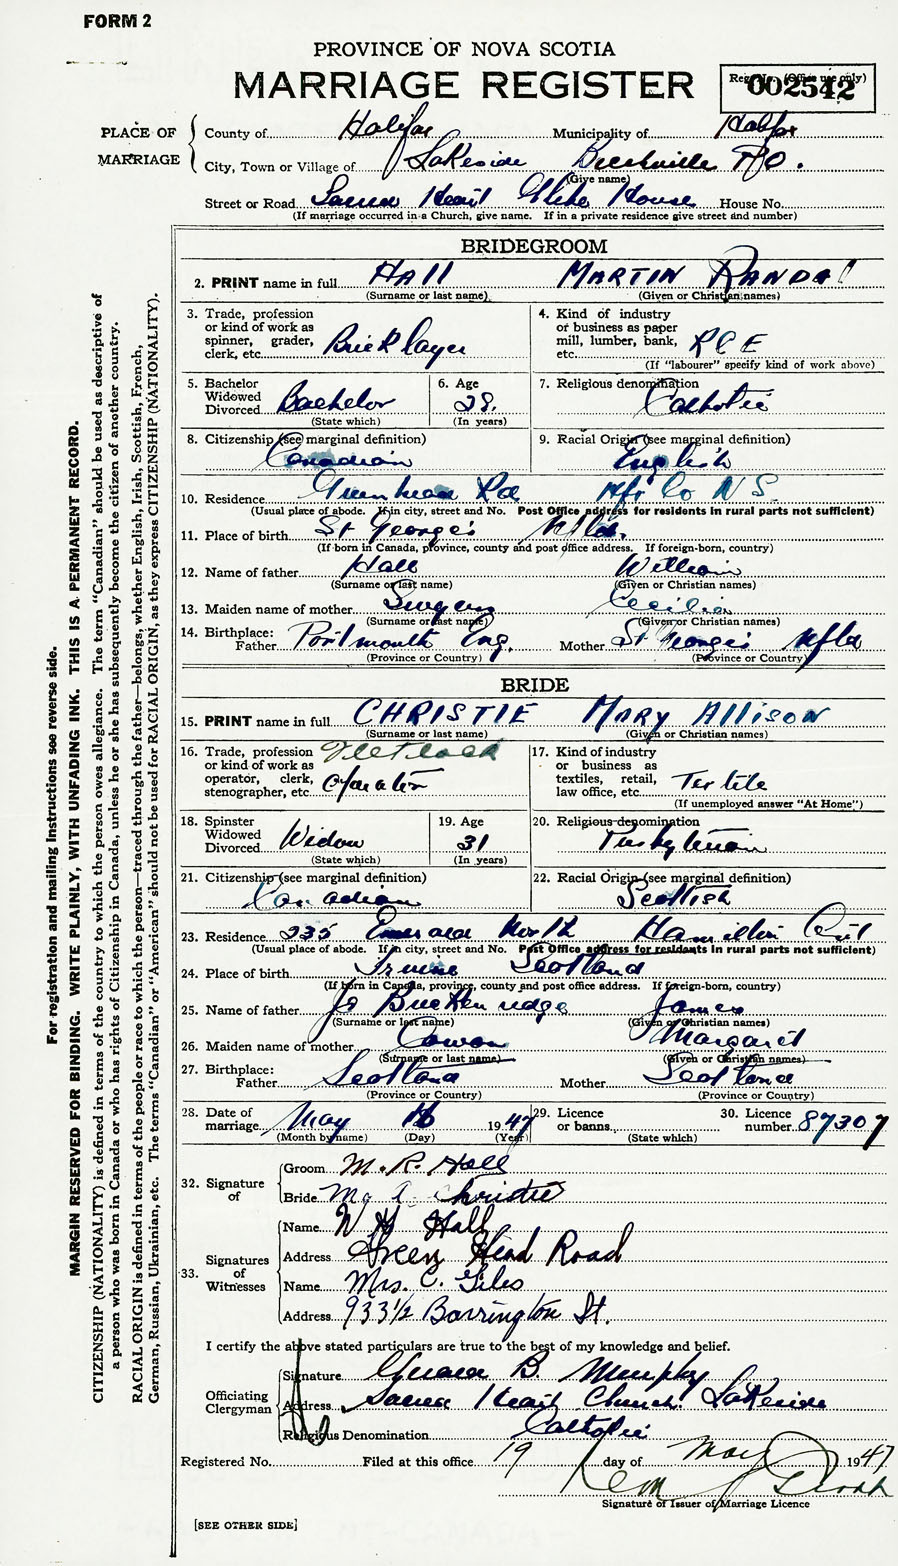 FORM 2
PROVINCE OF NOVA SCOTIA
MARRIAGE REGISTER
Reg. No. (Office use only)
002542
PLACE OF MARRIAGE
County of Halifax Municipality of Halifax
City, Town or Village of Lakeside Beechville P.O.
(Give name)
Street or Road Sacred Heart Glebe House House No.
(If marriage occurred in a Church, give name. If in a private residence give street and number)
BRIDEGROOM
2. PRINT name in full HAll MARTIN RANDAl
(Surname or last name) (Given or Christian names)
3. Trade, profession or kind of work as spinner, grader, clerk, etc. Bricklayer
4. Kind of industry or business as paper mill, lumber, bank, etc. RCE
(If "labourer" specify kind of work above)
5. Bachelor Widowed Divorced Bachelor
(State which)
6. Age 28.
(In years)
7. Religious denomination Catholic
8. Citizenship (see marginal definition) Canadian
9. Racial Origin (see marginal definition) English
10. Residence Greenhead Rd Hfx Co N S.
(Usual place of abode. If in city, street and No. Post Office address for residents in rural parts not sufficient)
11. Place of birth St George's Nfld.
(If born in Canada, province, county and post office address. If foreign-born, country)
12. Name of father Hall William
(Surname or last name) (Given or Christian names)
13. Maiden name of mother Cecilia
(Surname or last name) (Given or Christian names)
14. Birthplace: Father Portmouth Eng. Mother St George's Nfld
(Province or Country) (Province or Country)
BRIDE
15. PRINT name in full CHRISTIE MARY AllISON
(Surname or last name) (Given or Christian names)
16. Trade, profession or kind of work as operator, clerk, stenographer, etc. operator
17. Kind of industry or business as textiles, retail, law office, etc. Textile
(If unemployed answer "At Home")
18. Spinster Widowed Divorced Widow
(State which)
19. Age 31
(In years)
20. Religious denomination Presbyterian
21. Citizenship (see marginal definition) Canadian
22. Racial Origin (see marginal definition) Scottish
23. Residence 235 Emerald North Hamilton Ont
(Usual place of abode. If in city, street and No. Post Office address for residents in rural parts not sufficient)
24. Place of birth Irvine Scotland
(If born in Canada, province, county and post office address. If foreign-born, country)
25. Name of father Breckenridge James
(Surname or last name) (Given or Christian names)
26. Maiden name of mother Cowan Margaret
(Surname or last name) (Given or Christian names)
27. Birthplace: Father Scotland Mother Scotland
(Province or Country) (Province or Country)
28. Date of marriage May 16 1947
(Month by name) (Day) (Year)
29. Licence or banns
(State which)
30. Licence number 87307
32. Signature of
Groom M. R. Hall
Bride Christie
33. Signatures of Witnesses
Name W H Hall
Address Green Head Road
Name Mrs. C. Giles
Address 933½ Barrington St.
I certify the above stated particulars are true to the best of my knowledge and belief.
Officiating Clergyman
Signature B. Murphy
Address Sacred Heart Church Lakeside
Religious Denomination Catholic
Registered No. Filed at this office 19 day of May 1947
Signature of Issuer of Marriage Licence
[SEE OTHER SIDE]
For registration and mailing instructions see reverse side.
MARGIN RESERVED FOR BINDING. WRITE PLAINLY, WITH UNFADING INK. THIS IS A PERMANENT RECORD.
CITIZENSHIP (NATIONALITY) is defined in terms of the country to which the person owes allegiance. The term "Canadian" should be used as descriptive of
a person who was born in Canada or who has rights of Citizenship in Canada, unless he or she has subsequently become the citizen of another country.
RACIAL ORIGIN is defined in terms of the people or race to which the person—traced through the father—belongs, whether English, Irish, Scottish, French,
German, Russian, Ukrainian, etc. The terms "Canadian" or "American" should not be used for RACIAL ORIGIN, as they express CITIZENSHIP (NATIONALITY).